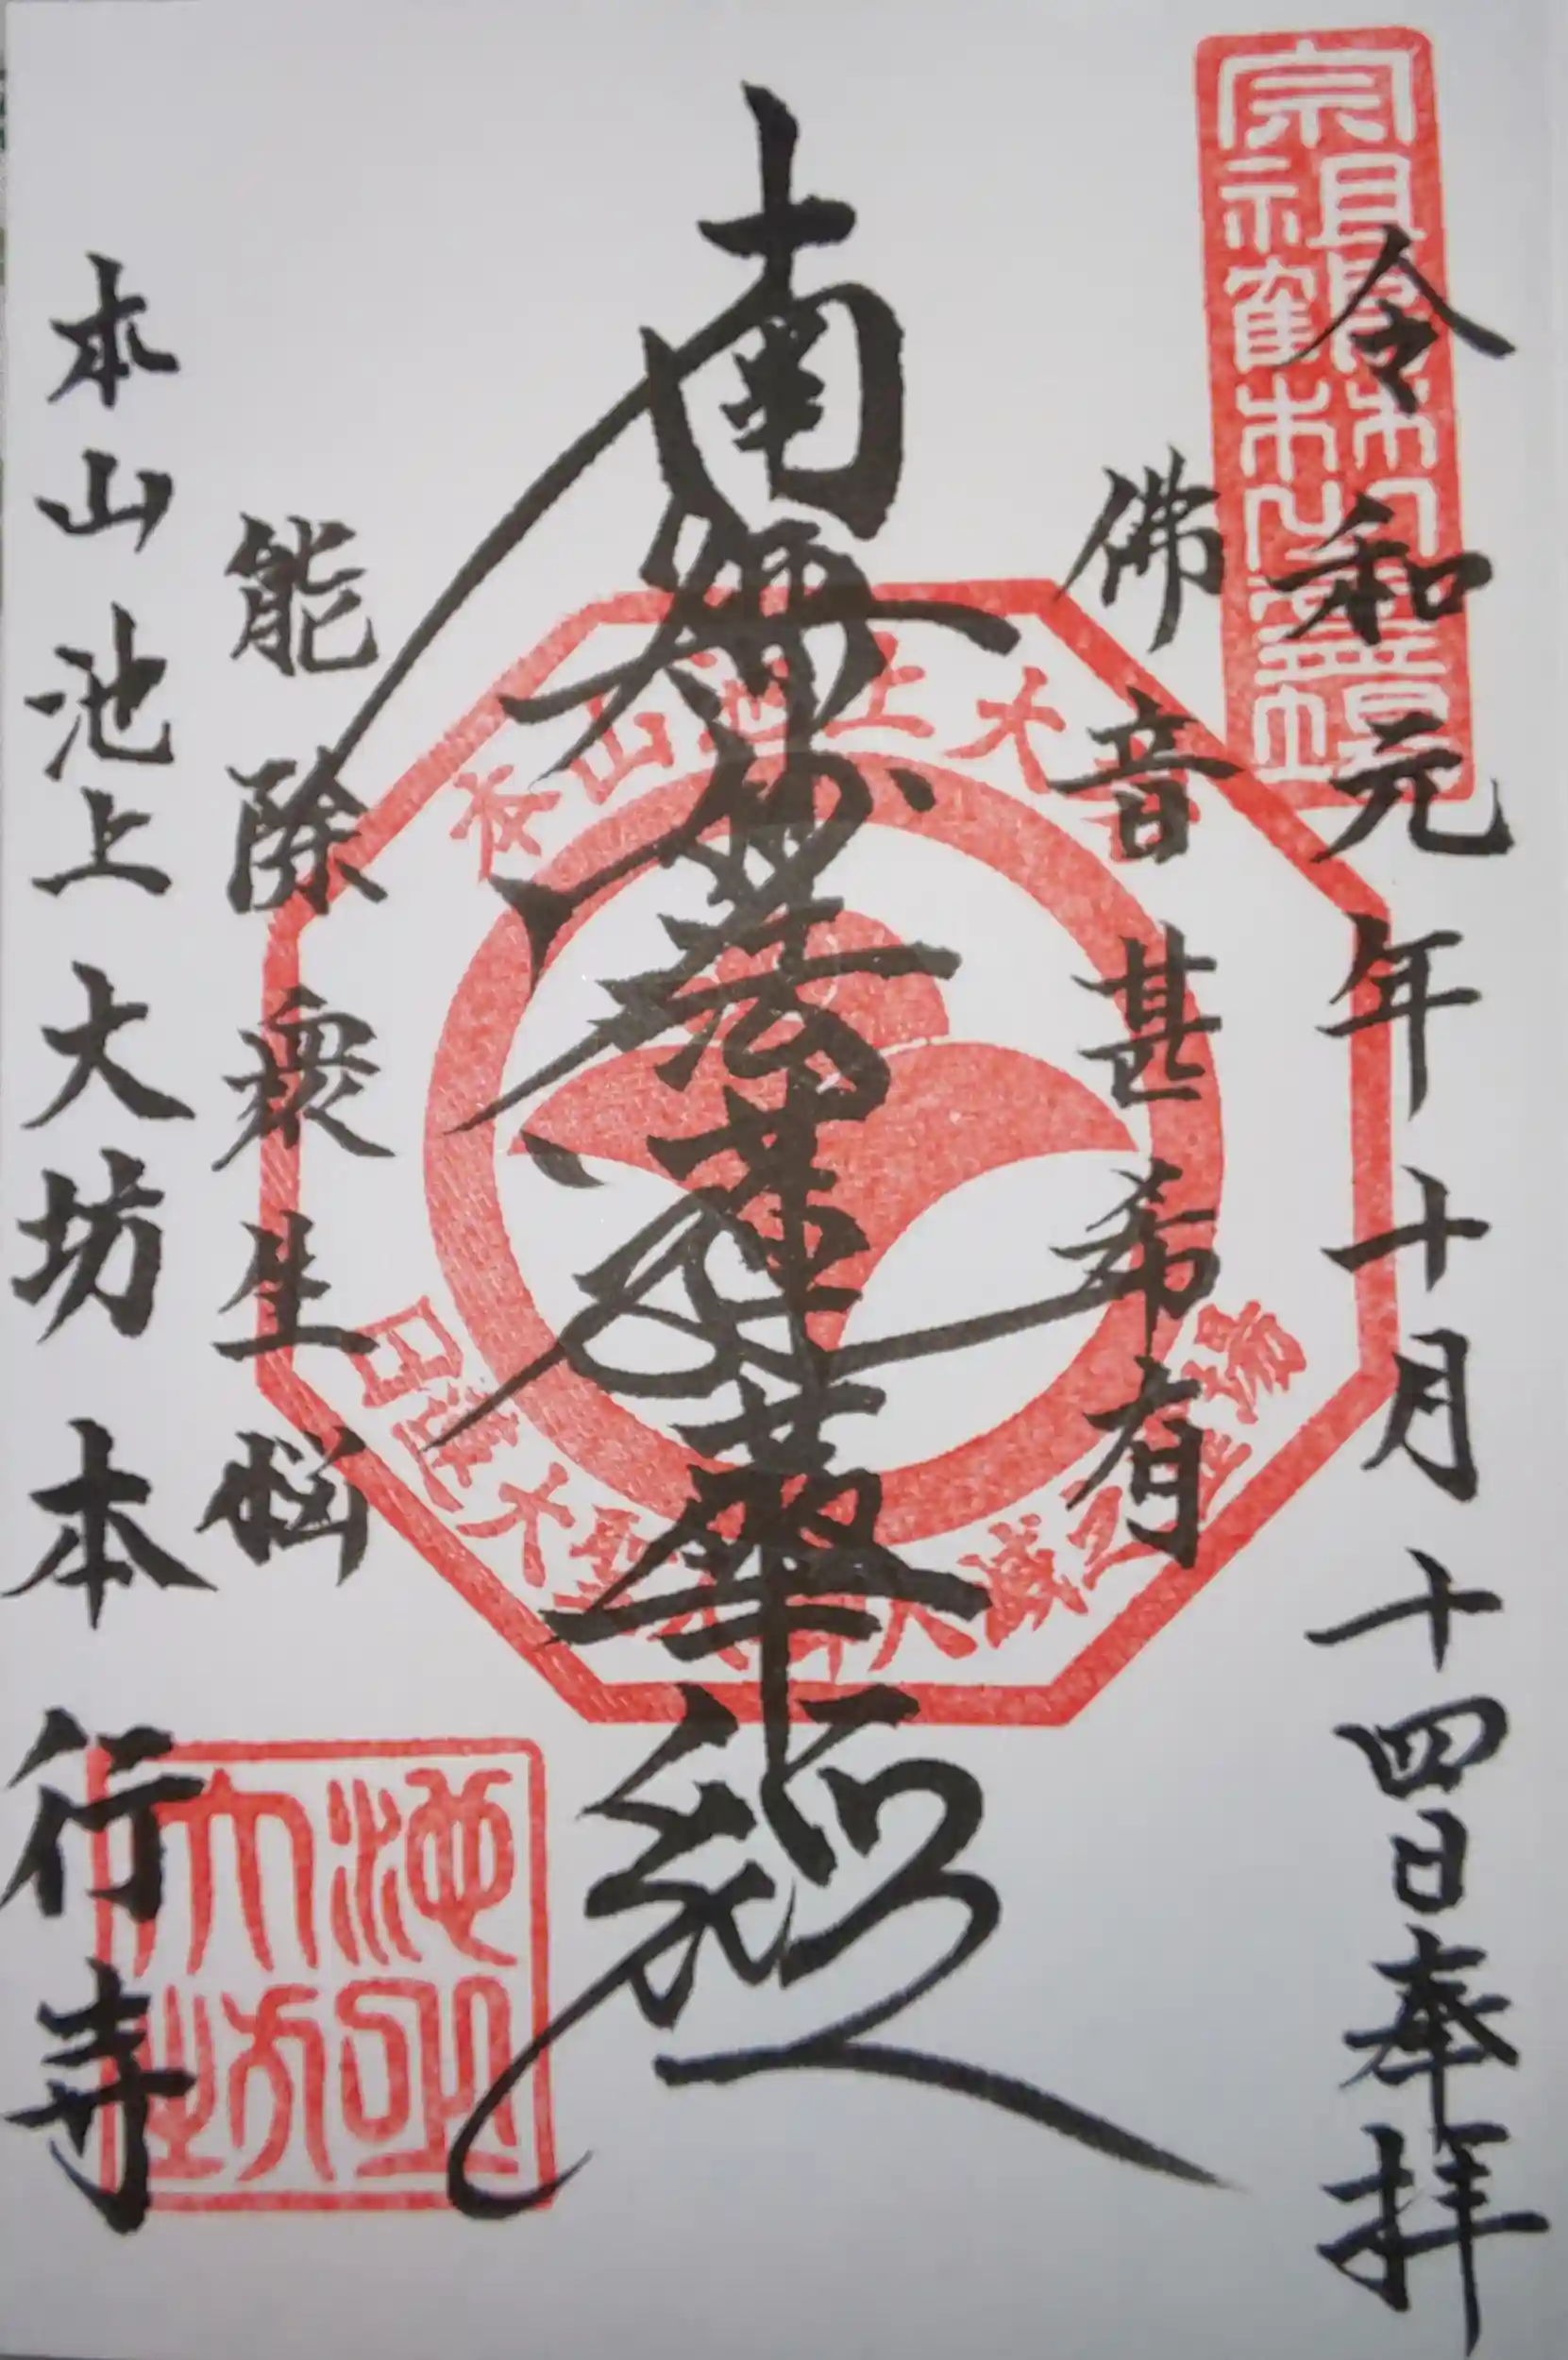 令和元年十月十四日奉拝
佛音甚希有
南無妙法蓮華経
能除衆生悩
本山池上大坊本行寺
本山池上大坊
日蓮大聖人御入滅之霊場